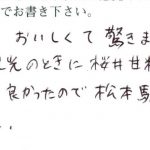 でお書き下さい。
おいしくて驚きま
光のときに桜井甘精
良かったので松本駅